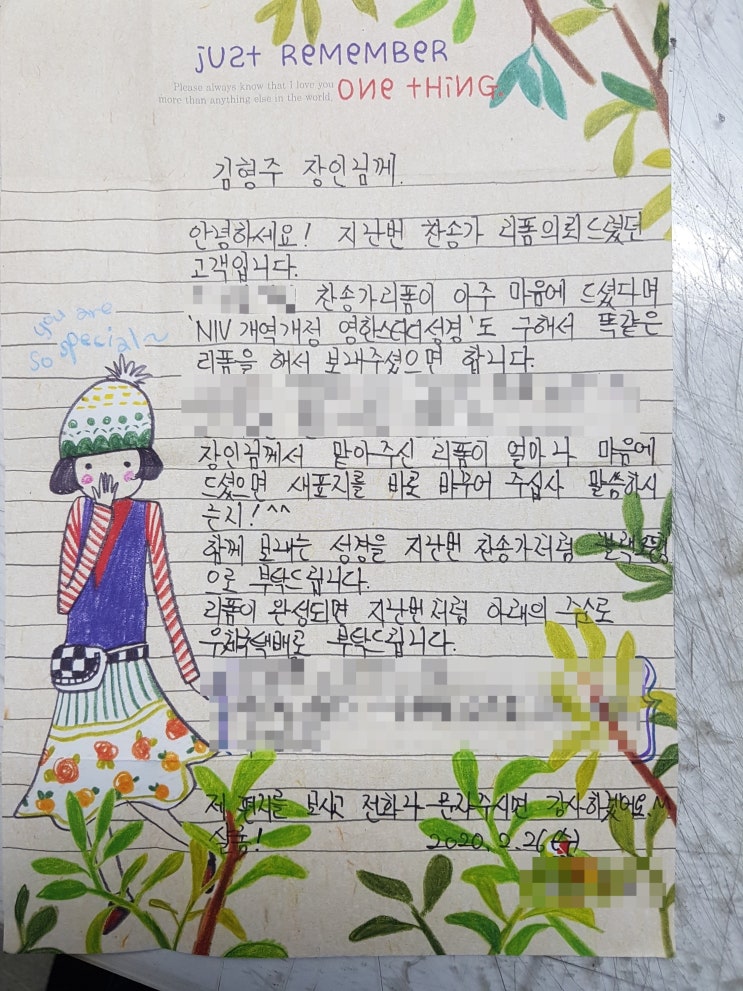 JUST REMEMBER
Please always know that I love you
more than anything else in the world.
ONE THING.
김형주 장인님께.
안녕하세요! 지난번 찬송가 리폼의뢰드렸던
고객입니다.
찬송가리폼이 아주 마음에 드셨다며
'NIV 개역개정 영한스터디성경'도 구해서 똑같은
리폼을 해서 보내주셨으면 합니다.
you are
so special~
장인님께서 맡아주신 리폼이 얼마나 마음에
드셨으면 새표지를 바로 바꾸어 주십사 말씀하시
는지!^^
함께 보내는 성경을 지난번 찬송가처럼
으로 부탁드립니다.
리폼이 완성되면 지난번처럼 아래의 주소로
우체국택배로 부탁드립니다.
제 편지를 보시고 전화나 문자주시면 감사하겠어요.
샬롬!
2020. 2. 26 (수)